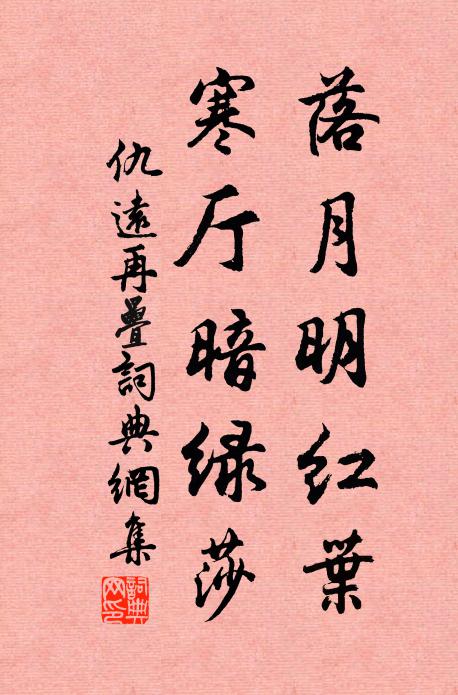 落月明红葉
寒厅暗绿莎
仇遠再疊詞典網集
詞典
网印